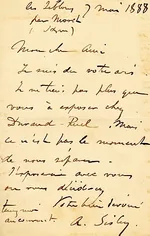 Les Sablons 7 mai 1888
par Moret
Mon cher Ami
Je suis de votre avis
Je ne tiens pas plus que
vous à exposer chez
Durand Ruel. Mais
ce n'est pas le moment
de nous séparer.
J'exposerai avec vous
ou vous
Votre bien dévoué
tenez moi
au courant
A. Sisley